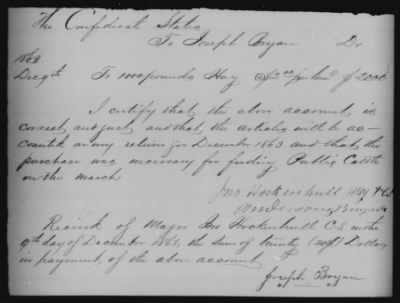 The Confederate States
To Joseph Bryan Dr
1863
Dec 9th To 1000 pounds Hay @ 2.00 $ 20.00
I certify that the above account is
correct and just and that the articles will be ac-
counted on my return for December 1863 and that the
purchase was necessary for feeding Public Cattle
on the march
Jno Hockenhull Maj & CS
Anderson's Brigade
Received of Major Jno Hockenhull C.S. on the
9th day of December 1863, the sum of twenty (20) Dollars
in payment of the above account
Joseph Bryan